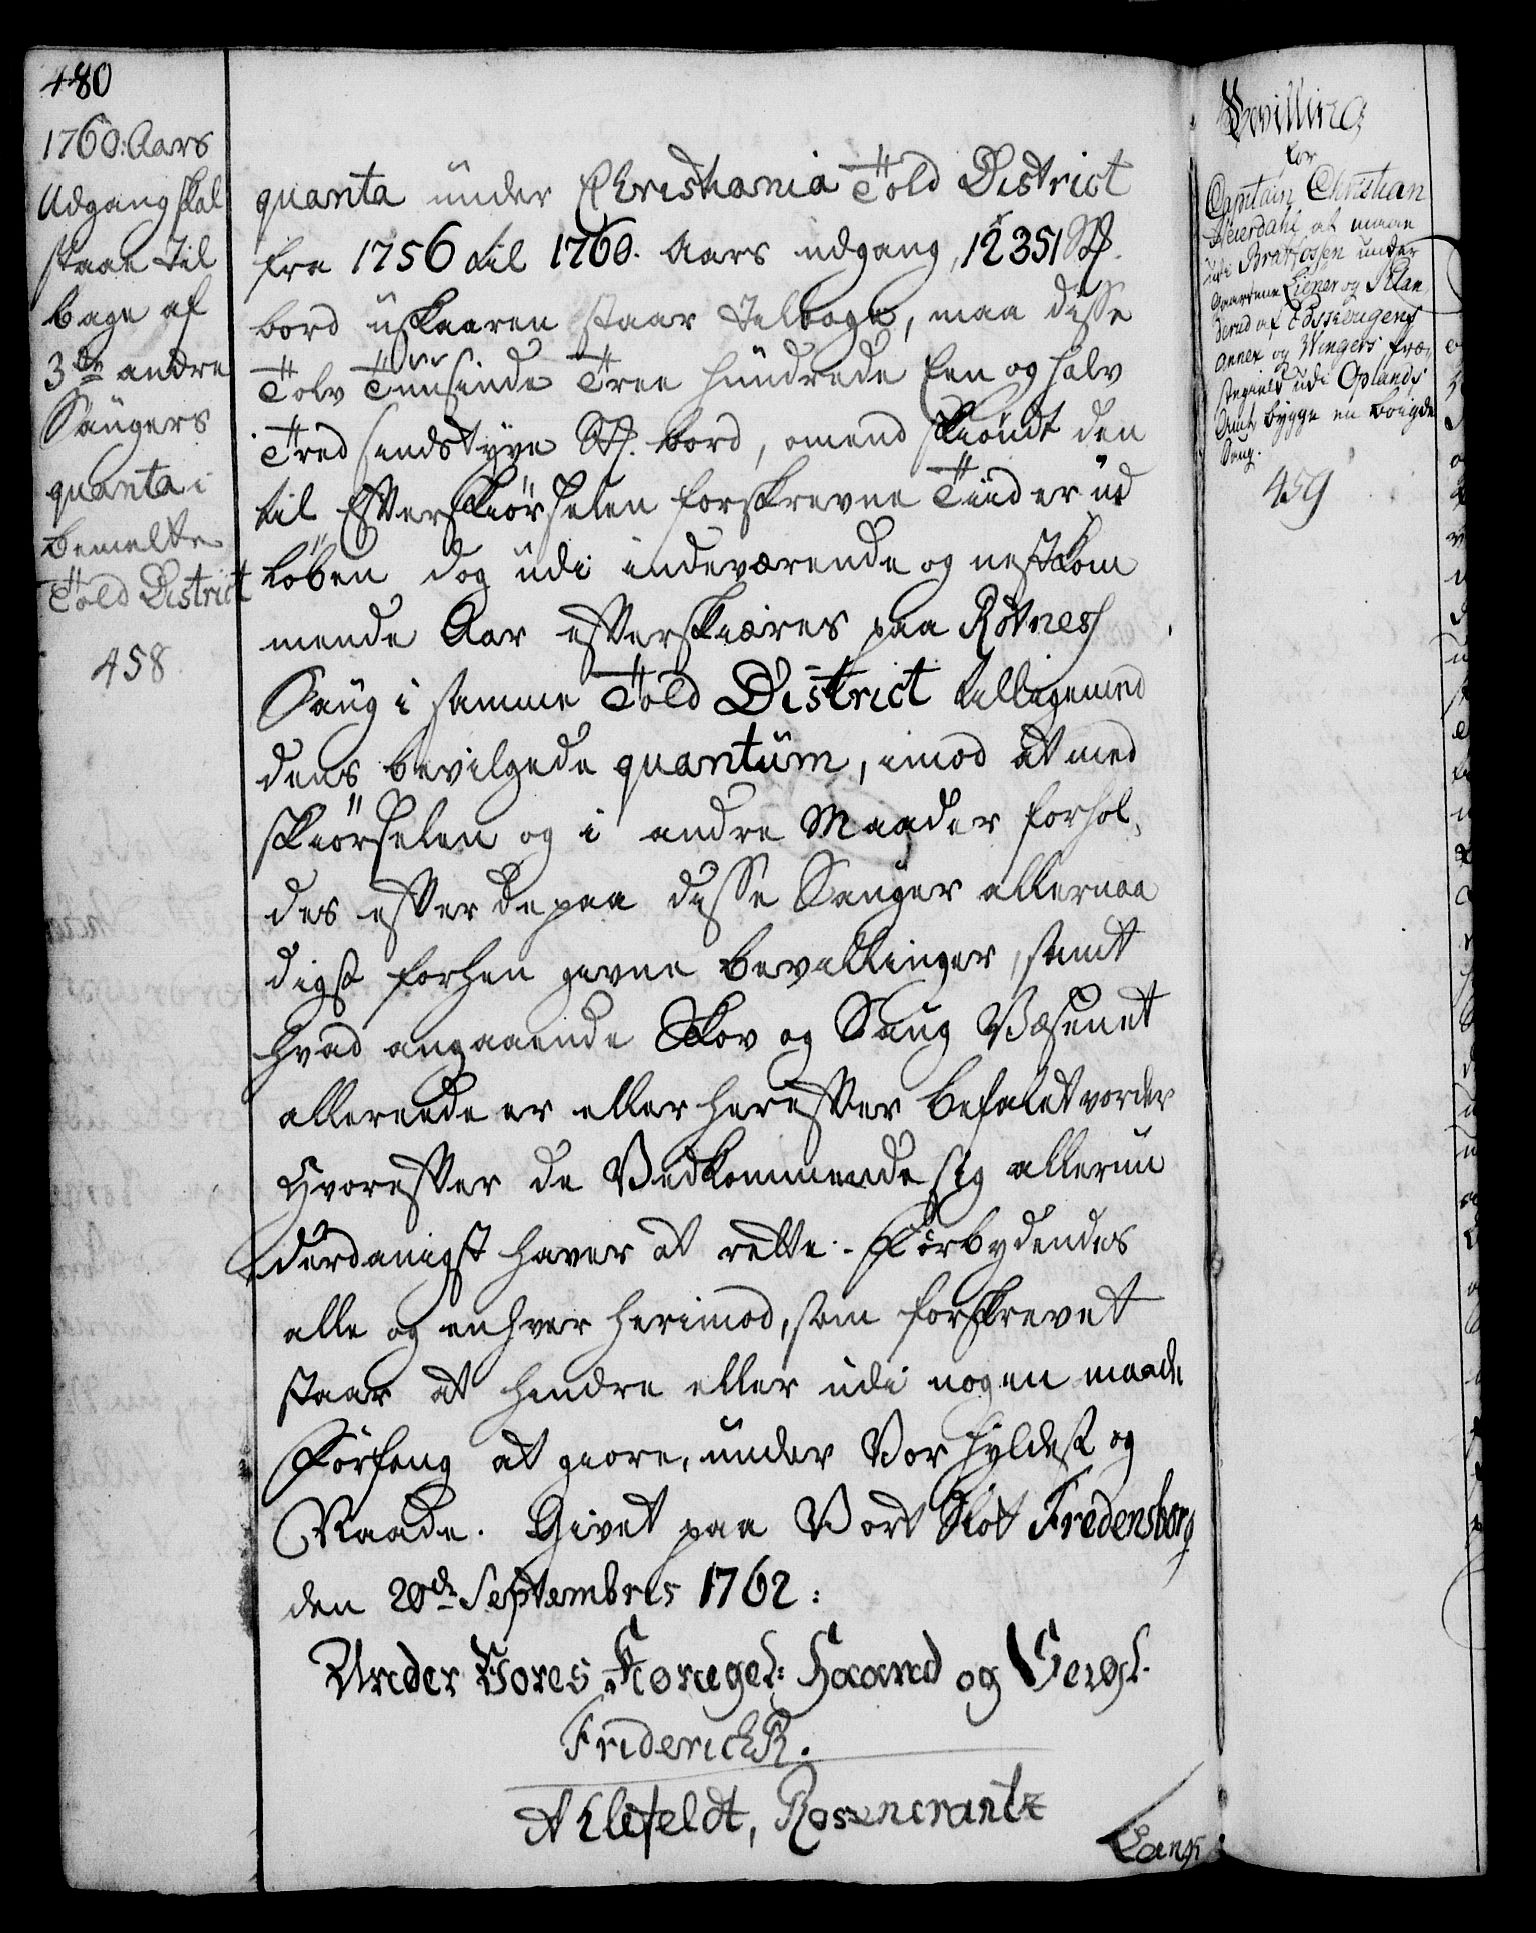 480
1760: Aars
Udgang skal
staae til
bage af
3de andre
Saugers
quanta i
bemelte
Told District
458
quanta under Christiania Told District
fra 1756 til 1760. Aars udgang, 12351 St.
bord uskaaren staar tilbage, maa disse
Tolv Tusinde Tree hundrede Een og halv
Tredsindstyve St. bord, omendskiøndt den
til Efterskiørselen forskrevne Tiid er ud
løben dog udi indeværende og nestkom
mende Aar efterskiæres paa Rotness
Saug i samme Told District tilligemed
dens bevilgede quantum, imod at med
skiørselen og i andre Maader forhol,
des efter de paa disse Sauger allernaa
digst forhen givne bevillinger, samt
hvad angaaende Skov og Saug Væsenet
allereede er eller herefter befalet vorder
Hvorefter de Vedkommende sig allerun
derdanigst haver at rette. Forbydendes
alle og enhver herimod, som forskrevet
staar at hindre eller udi nogen maade
Forfang at giøre, under Vor Hyldest og
Naade. Givet paa Vort Slot Fredensborg
den 20de Septembris 1762:
Under Vores Kongel: Haand og Seigl.
Friderich R.
Ahlefeldt, Rosencrantz
Lange
Bevilling
for
Captain Christian
Heierdahl at maae
udi Bratfossen under
Gaardene Liener og Klan
derud af Edskeugens
Annex og Wingers Præ,
stegield udi Oplands
Amt bygge en Bøigde
Saug.
459